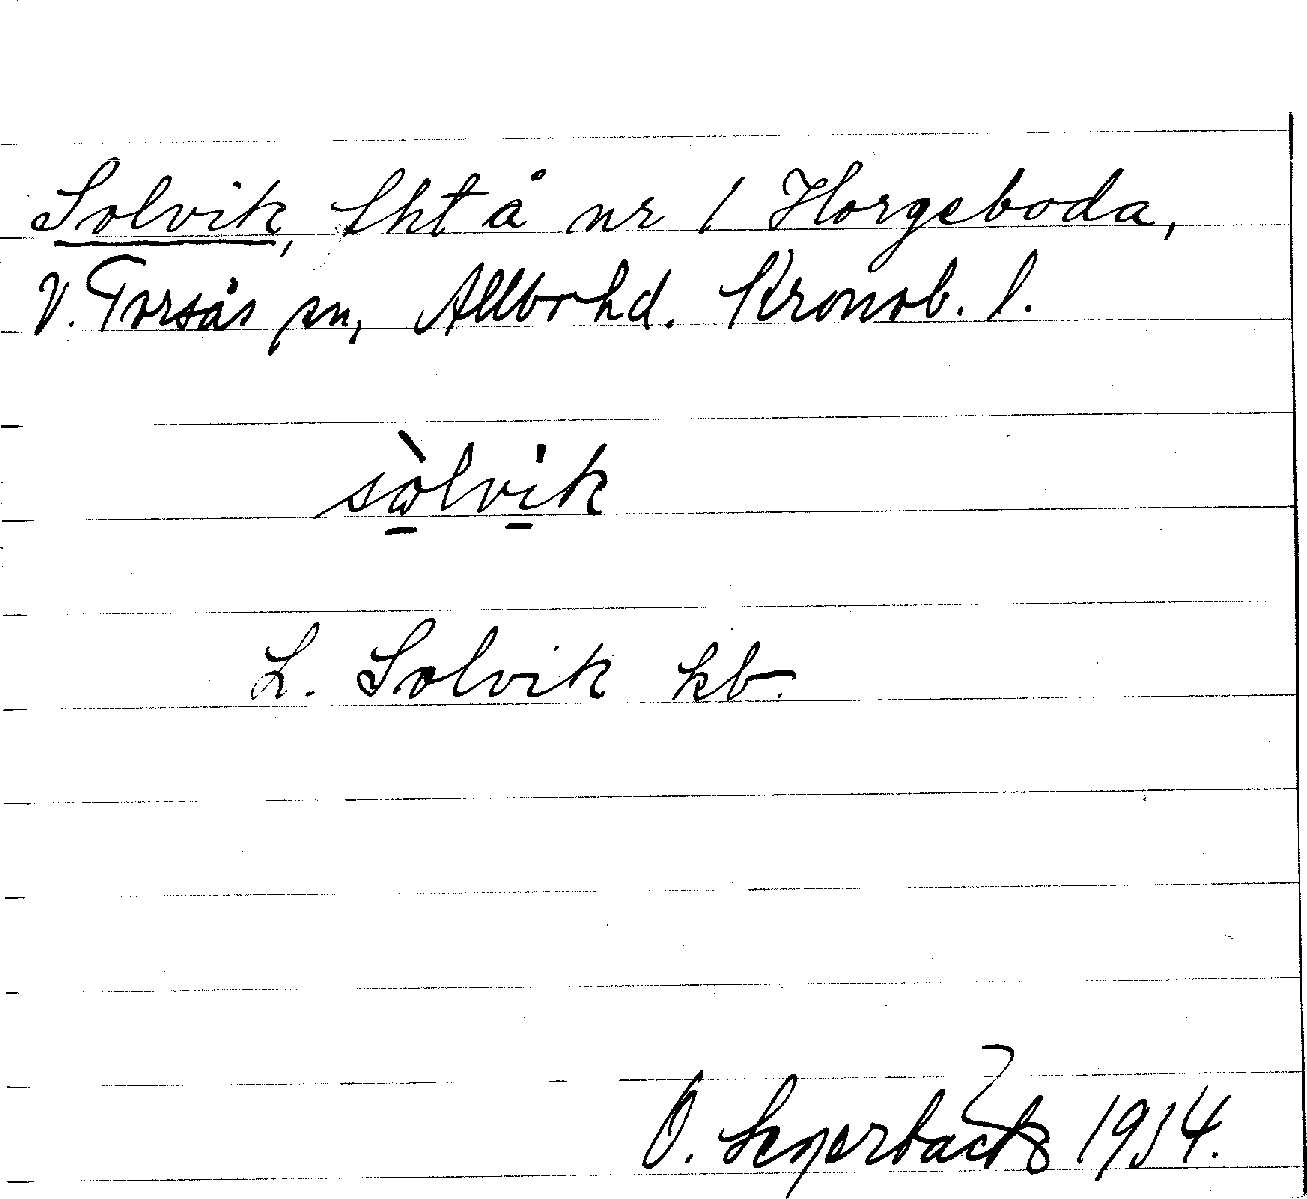 Solvik, lht å nr 1 Horgeboda,
V. Torsås sn, Allbo hd. Kronob. l.
sòlvik
L. Solvik kb.
O. 1934.